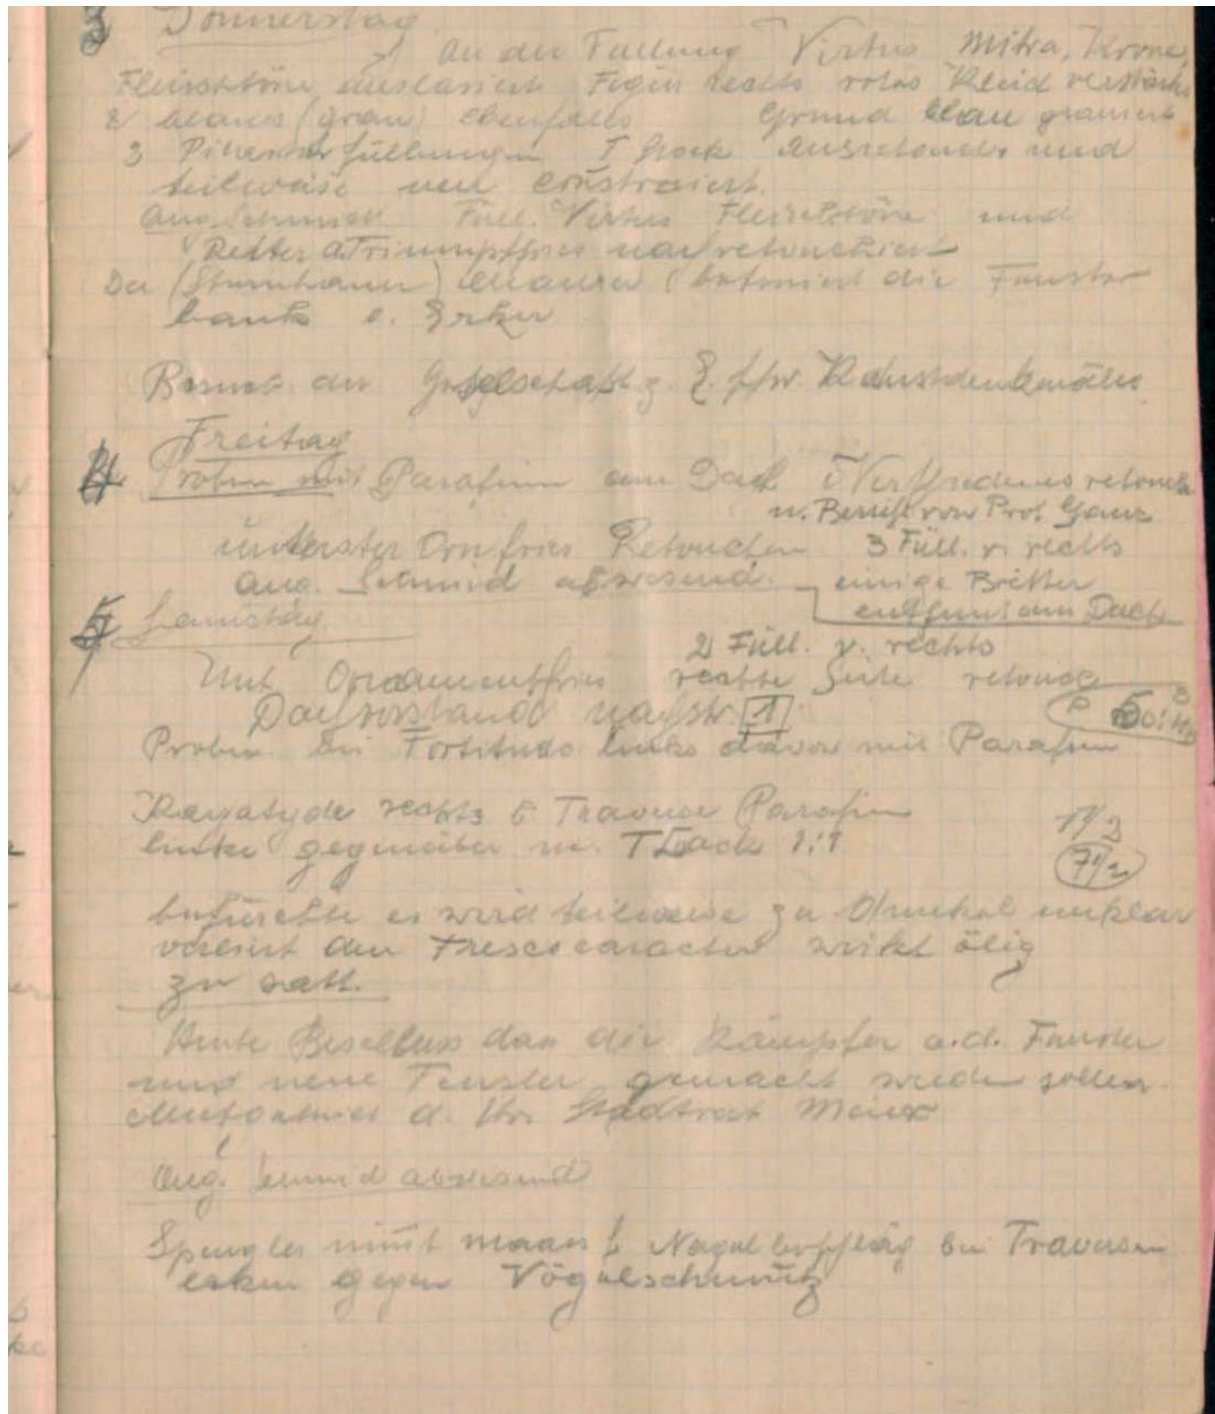 3 Donnerstag
An der Füllung Virtus Mitra, Krone,
Fleischtöne auslasiert Figur rechts rotes Kleid verstärkt
& blaues (grau) ebenfalls Grund blau
3 Pilaster füllungen I Stock ausretouch. und
teilweise neu
Aug. Schmidt Füll. Virtus Fleischtöne und
Retter a. Triumpffries nachretouchiert
Der (Steinhauer) Maurer betoniert die Fenster
bank e. Erker
Besuch der Gesellschaft z. E. f/w. Kunstdenkmäler
4 Freitag
Proben mit Parafinn am Dach & Verschiedenes retouch
u. Besuch von Prof. Ganz
unterster Orn fries Retouchen 3 Füll. v. rechts
Aug. Schmid abwesend. einige Bretter
entfernt am Dach
5 Samstag
2 Füll. v. rechts
Unt Ornamentfries rechte Seite retouch
1
Proben bei Fortitudo links davon mit Parafin
Karyatyde rechts 5 Traverse Parafin
links gegenüber m. T Lack 1:1
7 1/2
befürchte es wird teilweise zu dunkel unklar
verliert den Frescocaracter wirkt ölig
zu satt.
Heute Beschluss das die Kämpfer a.d. Fenster
und neue Fenster gemacht werden sollen.
d. Hr. Stadtrat
Aug. Schmid abwesend
Spengler nimt maass f. Nagel bei Traversen
erker gegen Vögelschmutz